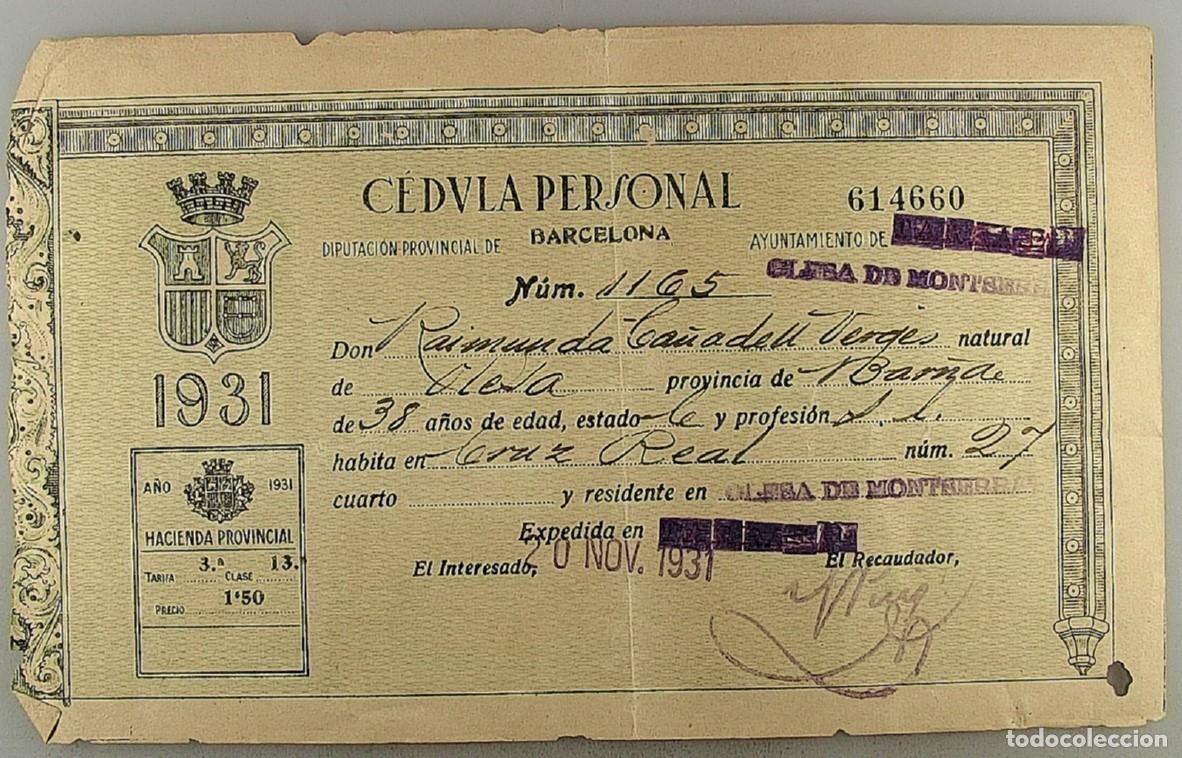 CÉDVLA PERSONAL
614660
DIPUTACIÓN PROVINCIAL DE BARCELONA
AYUNTAMIENTO DE
OLESA DE MONTSERRA
Núm. 1165
Don Raimunda Cañadell Vergés natural
de Olesa provincia de Barna
de 38 años de edad, estado C y profesión S. l.
habita en Cruz Real núm. 27
cuarto y residente en OLESA DE MONTSERRAT
Expedida en
20 NOV. 1931
El Interesado,
El Recaudador,
1931
AÑO 1931
HACIENDA PROVINCIAL
TARIFA 3.ª CLASE 13.ª
PRECIO 1'50
todocoleccion